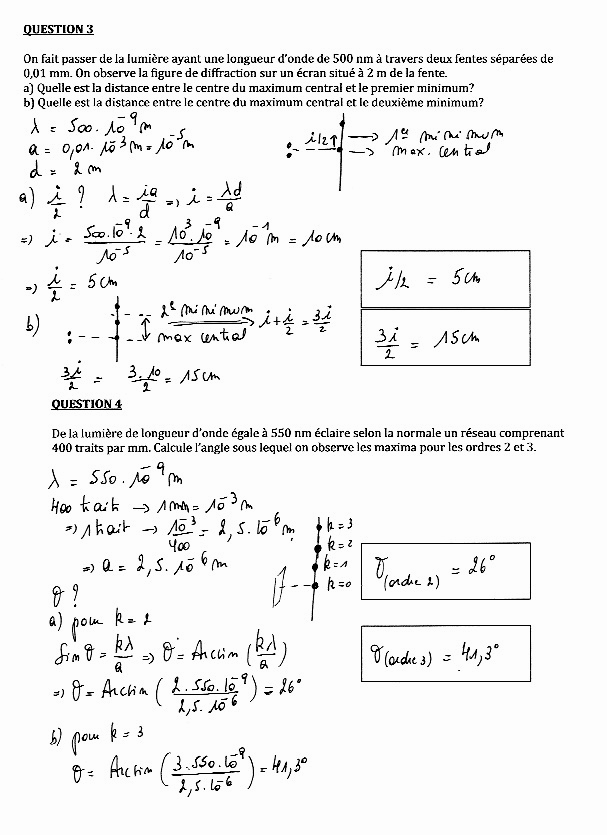 QUESTION 3
On fait passer de la lumière ayant une longueur d'onde de 500 nm à travers deux fentes séparées de
0,01 mm. On observe la figure de diffraction sur un écran situé à 2 m de la fente.
a) Quelle est la distance entre le centre du maximum central et le premier minimum?
b) Quelle est la distance entre le centre du maximum central et le deuxième minimum?
λ = 500 . 10⁻⁹ m
a = 0,01 . 10⁻³ m = 10⁻⁵ m
d = 2 m
i/2 ↑ → 1er minimum
→ max. central
a) i/2 ? λ = ia/d => i = λd/a
=> i = 500.10⁻⁹.2 / 10⁻⁵ = 10³.10⁻⁹ / 10⁻⁵ = 10⁻¹ m = 10 cm
=> i/2 = 5 cm
i/2 = 5 cm
b) 2e minimum
max central → i + i/2 = 3i/2
3i/2 = 15 cm
3i/2 = 3.10/2 = 15 cm
QUESTION 4
De la lumière de longueur d'onde égale à 550 nm éclaire selon la normale un réseau comprenant
400 traits par mm. Calcule l'angle sous lequel on observe les maxima pour les ordres 2 et 3.
λ = 550 . 10⁻⁹ m
400 traits → 1 mm = 10⁻³ m
=> 1 trait → 10⁻³/400 = 2,5.10⁻⁶ m
=> a = 2,5.10⁻⁶ m
k = 3
k = 2
k = 1
k = 0
θ ?
θ (ordre 2) = 26°
a) pour k = 2
Sin θ = kλ/a => θ = Arcsin (kλ/a)
=> θ = Arcsin (2.550.10⁻⁹ / 2,5.10⁻⁶) = 26°
θ (ordre 3) = 41,3°
b) pour k = 3
θ = Arcsin (3.550.10⁻⁹ / 2,5.10⁻⁶) = 41,3°